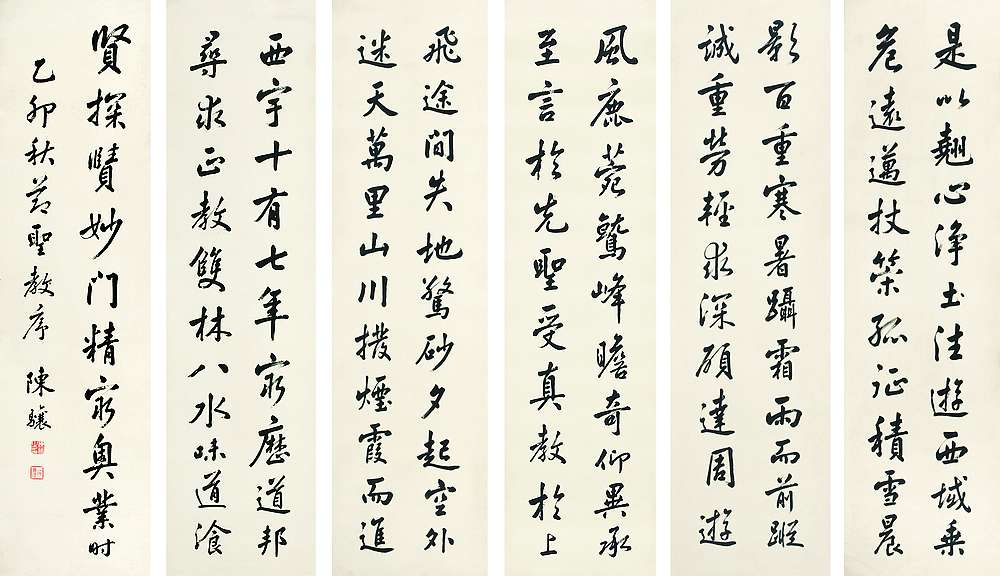 是以翹心淨土往遊西域乘
危遠邁杖策孤征積雪晨
影百重寒暑躡霜雨而前蹤
誠重勞輕求深願達周遊
風鹿菀鷲峰瞻奇仰異承
至言於先聖受真教於上
飛途間失地驚砂夕起空外
迷天萬里山川撥煙霞而進
西宇十有七年窮歷道邦
尋求正教雙林八水味道湌
賢探賾妙門精窮奧業时
乙卯秋節聖教序 陳驤